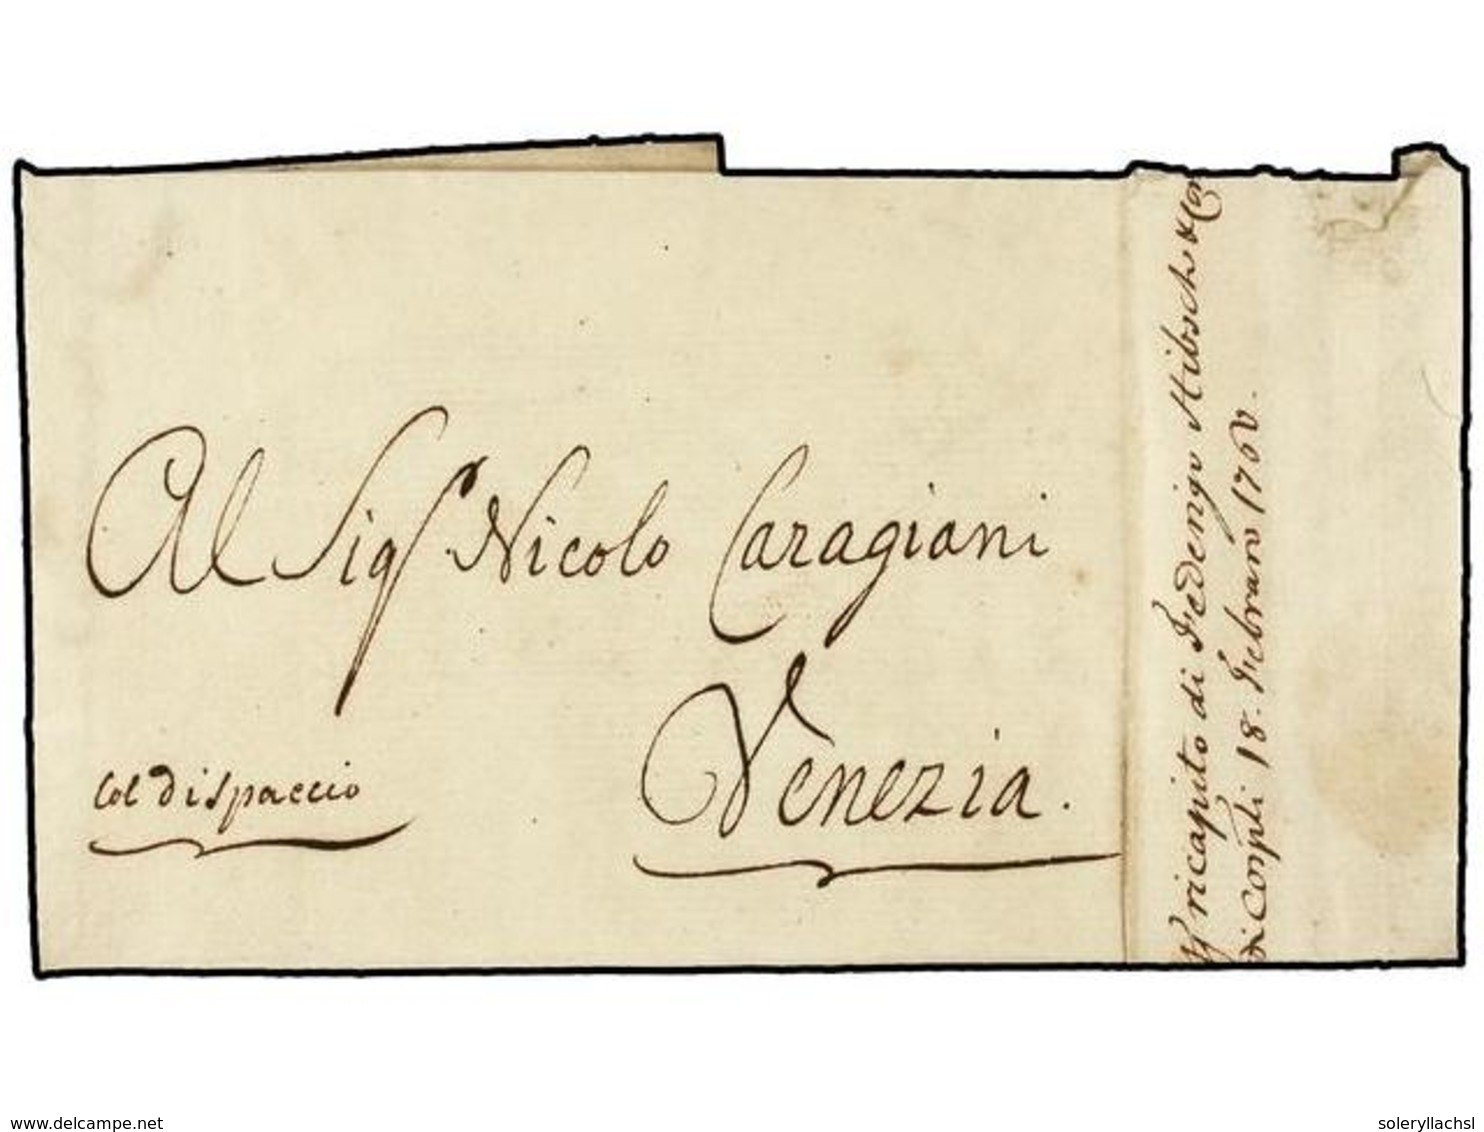 Al Sigr. Nicolo Caragiani
Venezia.
Col dispaccio
ricapito di Federigo Hibsch &
di Conpli 18. Febraro 176
www.delcampe.net
soleryllachsl